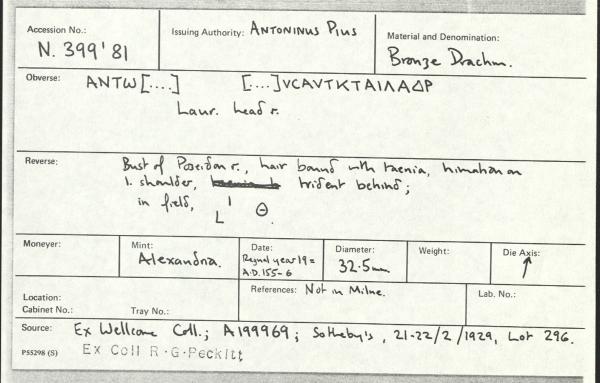 Accession No.: N. 399'81
Issuing Authority: ANTONINUS PIUS
Material and Denomination: Bronze Drachm.
Obverse: ANTω[....] [....]VCAVTKTAIΛAΔP
Laur. head r.
Reverse: Bust of Poseidon r., hair bound with taenia, himation on
l. shoulder, trident behind;
in field,
L I Θ
Moneyer:
Mint: Alexandria.
Date: Regnal year 19 = A.D. 155-6
Diameter: 32.5mm
Weight:
Die Axis: ↑
Location:
Cabinet No.: Tray No.:
References: Not in Milne.
Lab. No.:
Source: Ex Wellcome Coll.; A199969; Sotheby's, 21-22/2/1929, Lot 296.
PS5298 (S) Ex Coll R.G.Peckitt